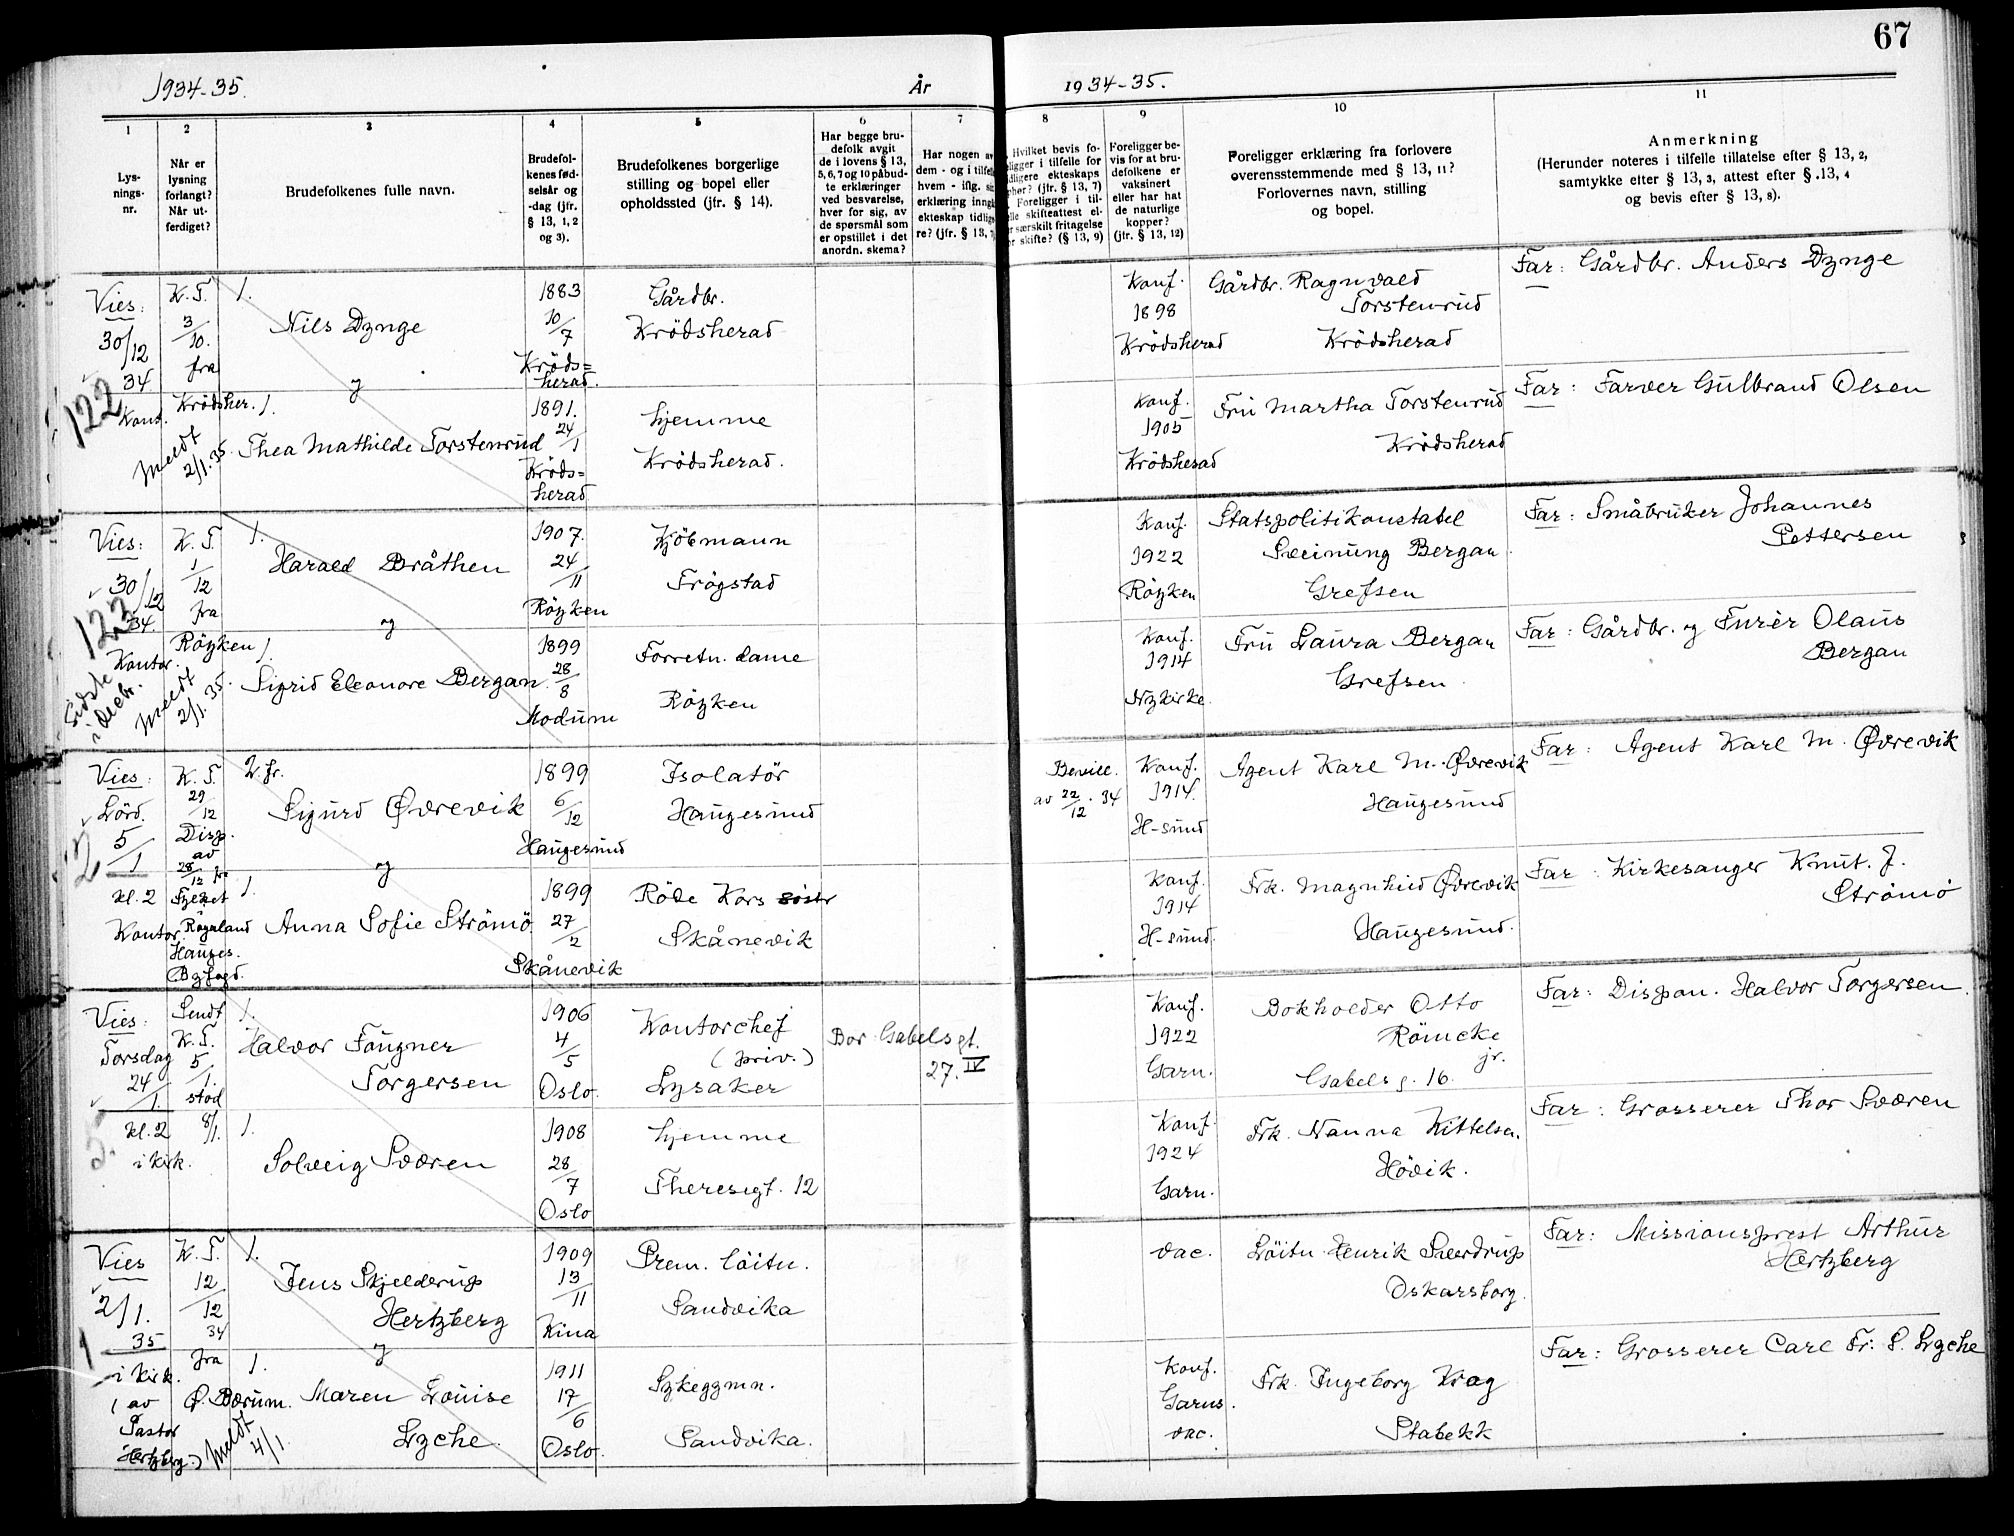 67
1934-35. År 1934-35.
1 2 3 4 5 6 7 8 9 10 11
Lys-
nings-
nr.
Når er
lysning
forlangt?
Når ut-
ferdiget?
Brudefolkenes fulle navn.
Brudefol-
kenes fød-
selsår og
-dag (jfr.
§ 13, 1, 2
og 3).
Brudefolkenes borgerlige
stilling og bopel eller
opholdssted (jfr. § 14).
Har begge bru-
defolk avgit
de i lovens § 13,
5, 6, 7 og 10 påbud-
te erklæringer
ved besvarelse,
hver for sig, av
de spørsmål som
er opstillet i det
anordn. skema?
Har nogen av
dem - og i tilfel
hvem - iflg. si
erklæring inng
ekteskap tidlig
re? (jfr. § 13,
Hvilket bevis fo-
ligger i tilfelle for
dligere ekteskaps
ehør? (jfr. § 13, 7)
Foreligger i til-
lle skifteattest el-
r særskilt fritagelse
or skifte? (§ 13, 9)
Foreligger be-
vis for at bru-
defolkene er
vaksinert
eller har hat
de naturlige
kopper?
(jfr. § 13, 12)
Foreligger erklæring fra forlovere
overensstemmende med § 13, 11?
Forlovernes navn, stilling
og bopel.
Anmerkning
(Herunder noteres i tilfelle tillatelse efter § 13, 2,
samtykke efter § 13, 3, attest efter § 13, 4
og bevis efter § 13, 8).
122
Vies:
30/12
34.
Kont.
meldt
2/1.35.
K. T.
3/10.
fra
Krødsher.
1.
Nils Dynge
1883
10/7
Kröds=
herad.
Gårdbr.
Krödsherad
Konf.
1898
Krödsherad
Gårdbr. Ragnvald
Torstenrud
Krödsherad
Far: Gårdbr. Anders Dynge
og
1.
Thea Mathilde Torstenrud
1891.
24/1
Kröds=
herad.
hjemme
Krödsherad.
Konf.
1905
Krödsherad
Fru Martha Torstenrud
Krödsherad
Far: Farver Gulbrand Olsen
123
Sidste
i decbr.
Vies:
30/12
34.
Kontor.
meldt
2/1.35.
K. T.
1/12
fra
Röyken
1.
Harald Bråthen
1907.
24/11
Röyken
Kjöbmann
Frogstad
Konf.
1922
Röyken
Statspolitikonstabel
Sveinung Bergan
Grefsen
Far: Småbruker Johannes
Pettersen
og
1.
Sigrid Eleonore Bergan.
1899
28/8
Modum
Forretn. dame
Röyken
Konf.
1914
Nykirke.
Fru Laura Bergan
Grefsen.
Far: Gårdbr. og Furér Olaus
Bergan
2
Vies:
Lörd.
5/1
kl. 2
Kontor.
K. T.
29/12
Disp.
av
28/12 fra
Fylket
Rogaland
Hauges.
Byfogd.
2. fr.
Sigurd Øvrevik
1899
6/12
Haugesund
Isolatör
Haugesund
Bevill.
av 22/12. 34
Konf.
1914.
H-sund
Agent Karl M. Øvrevik
Haugesund
Far: Agent Karl M. Øvrevik
og
1.
Anna Sofie Strömö
1899
27/2
Skånevik
Röde Kors söstr
Skånevik
Konf.
1914
H-sund.
Frk. Magnhild Øvrevik
Haugesund.
Far: Kirkesanger Knut. J.
Strömö
5
Vies:
Torsdag
24/1.
kl. 2
i Kirk.
Sendt
K. T.
5/1.
stod
8/1.
1.
Halvor Fougner
Torgersen
1906
4/5
Oslo.
Kontorchef
(priv.)
Lysaker
Bor Gabelsgt.
27. IV
Konf.
1922
Garn.
Bokholder Otto
Römcke
jr.
Gabelsg. 16.
Far: Dispon. Halvor Torgersen.
1.
Solveig Sværen
1908
28/7
Oslo
hjemme
Theresgt. 12
Konf.
1924
Garn.
Frk. Nanna Kittelsen.
Hövik.
Far: Grosserer Thor Sværen
1
Vies
2/1.
35
i Kirk.
(av
Pastor
Hertzberg.)
K. T.
12/12
34
fra
Ø. Bærum.
meldt
4/1.
1.
Jens Skjelderup
Hertzberg
1909
13/11
Kina
Prem. löitn.
Sandvika
vac.
Löitn. Henrik Sverdrup
Oskarsborg.
Far: Missionsprest Arthur
Hertzberg
og
1.
Maren Louise
Lyche.
1911
17/6
Oslo.
Sykegymn.
Sandvika.
Konf.
Garns.
vac.
Frk. Ingeborg Krag
Stabekk
Far: Grosserer Carl Fr. S. Lyche